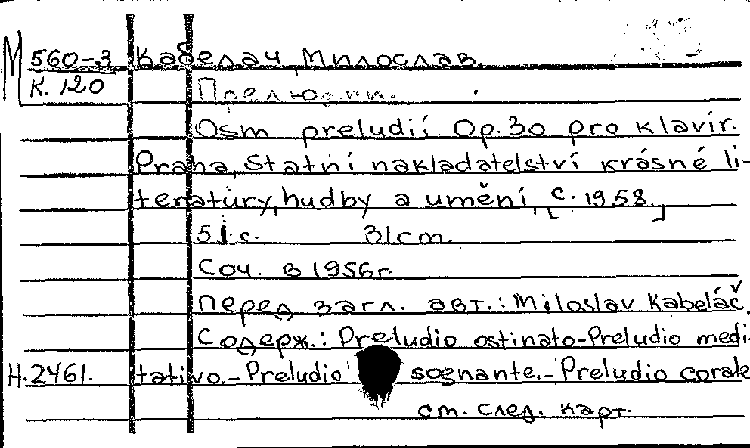 М 560-3 Кабелач, Милослав.
К. 120 Прелюдии.
Osm preludií Op. 30 pro klavír.
Praha, Statní nakladatelství krásné li-
teratury, hudby a umění, [c. 1958.]
51 с. 31 cm.
Соч. в 1956г.
Перед загл. авт.: Miloslav Kabeláč.
Содерж.: Preludio ostinato-Preludio medi-
Н.2461. tativo.-Preludio sognante.-Preludio corale
см. след. карт.